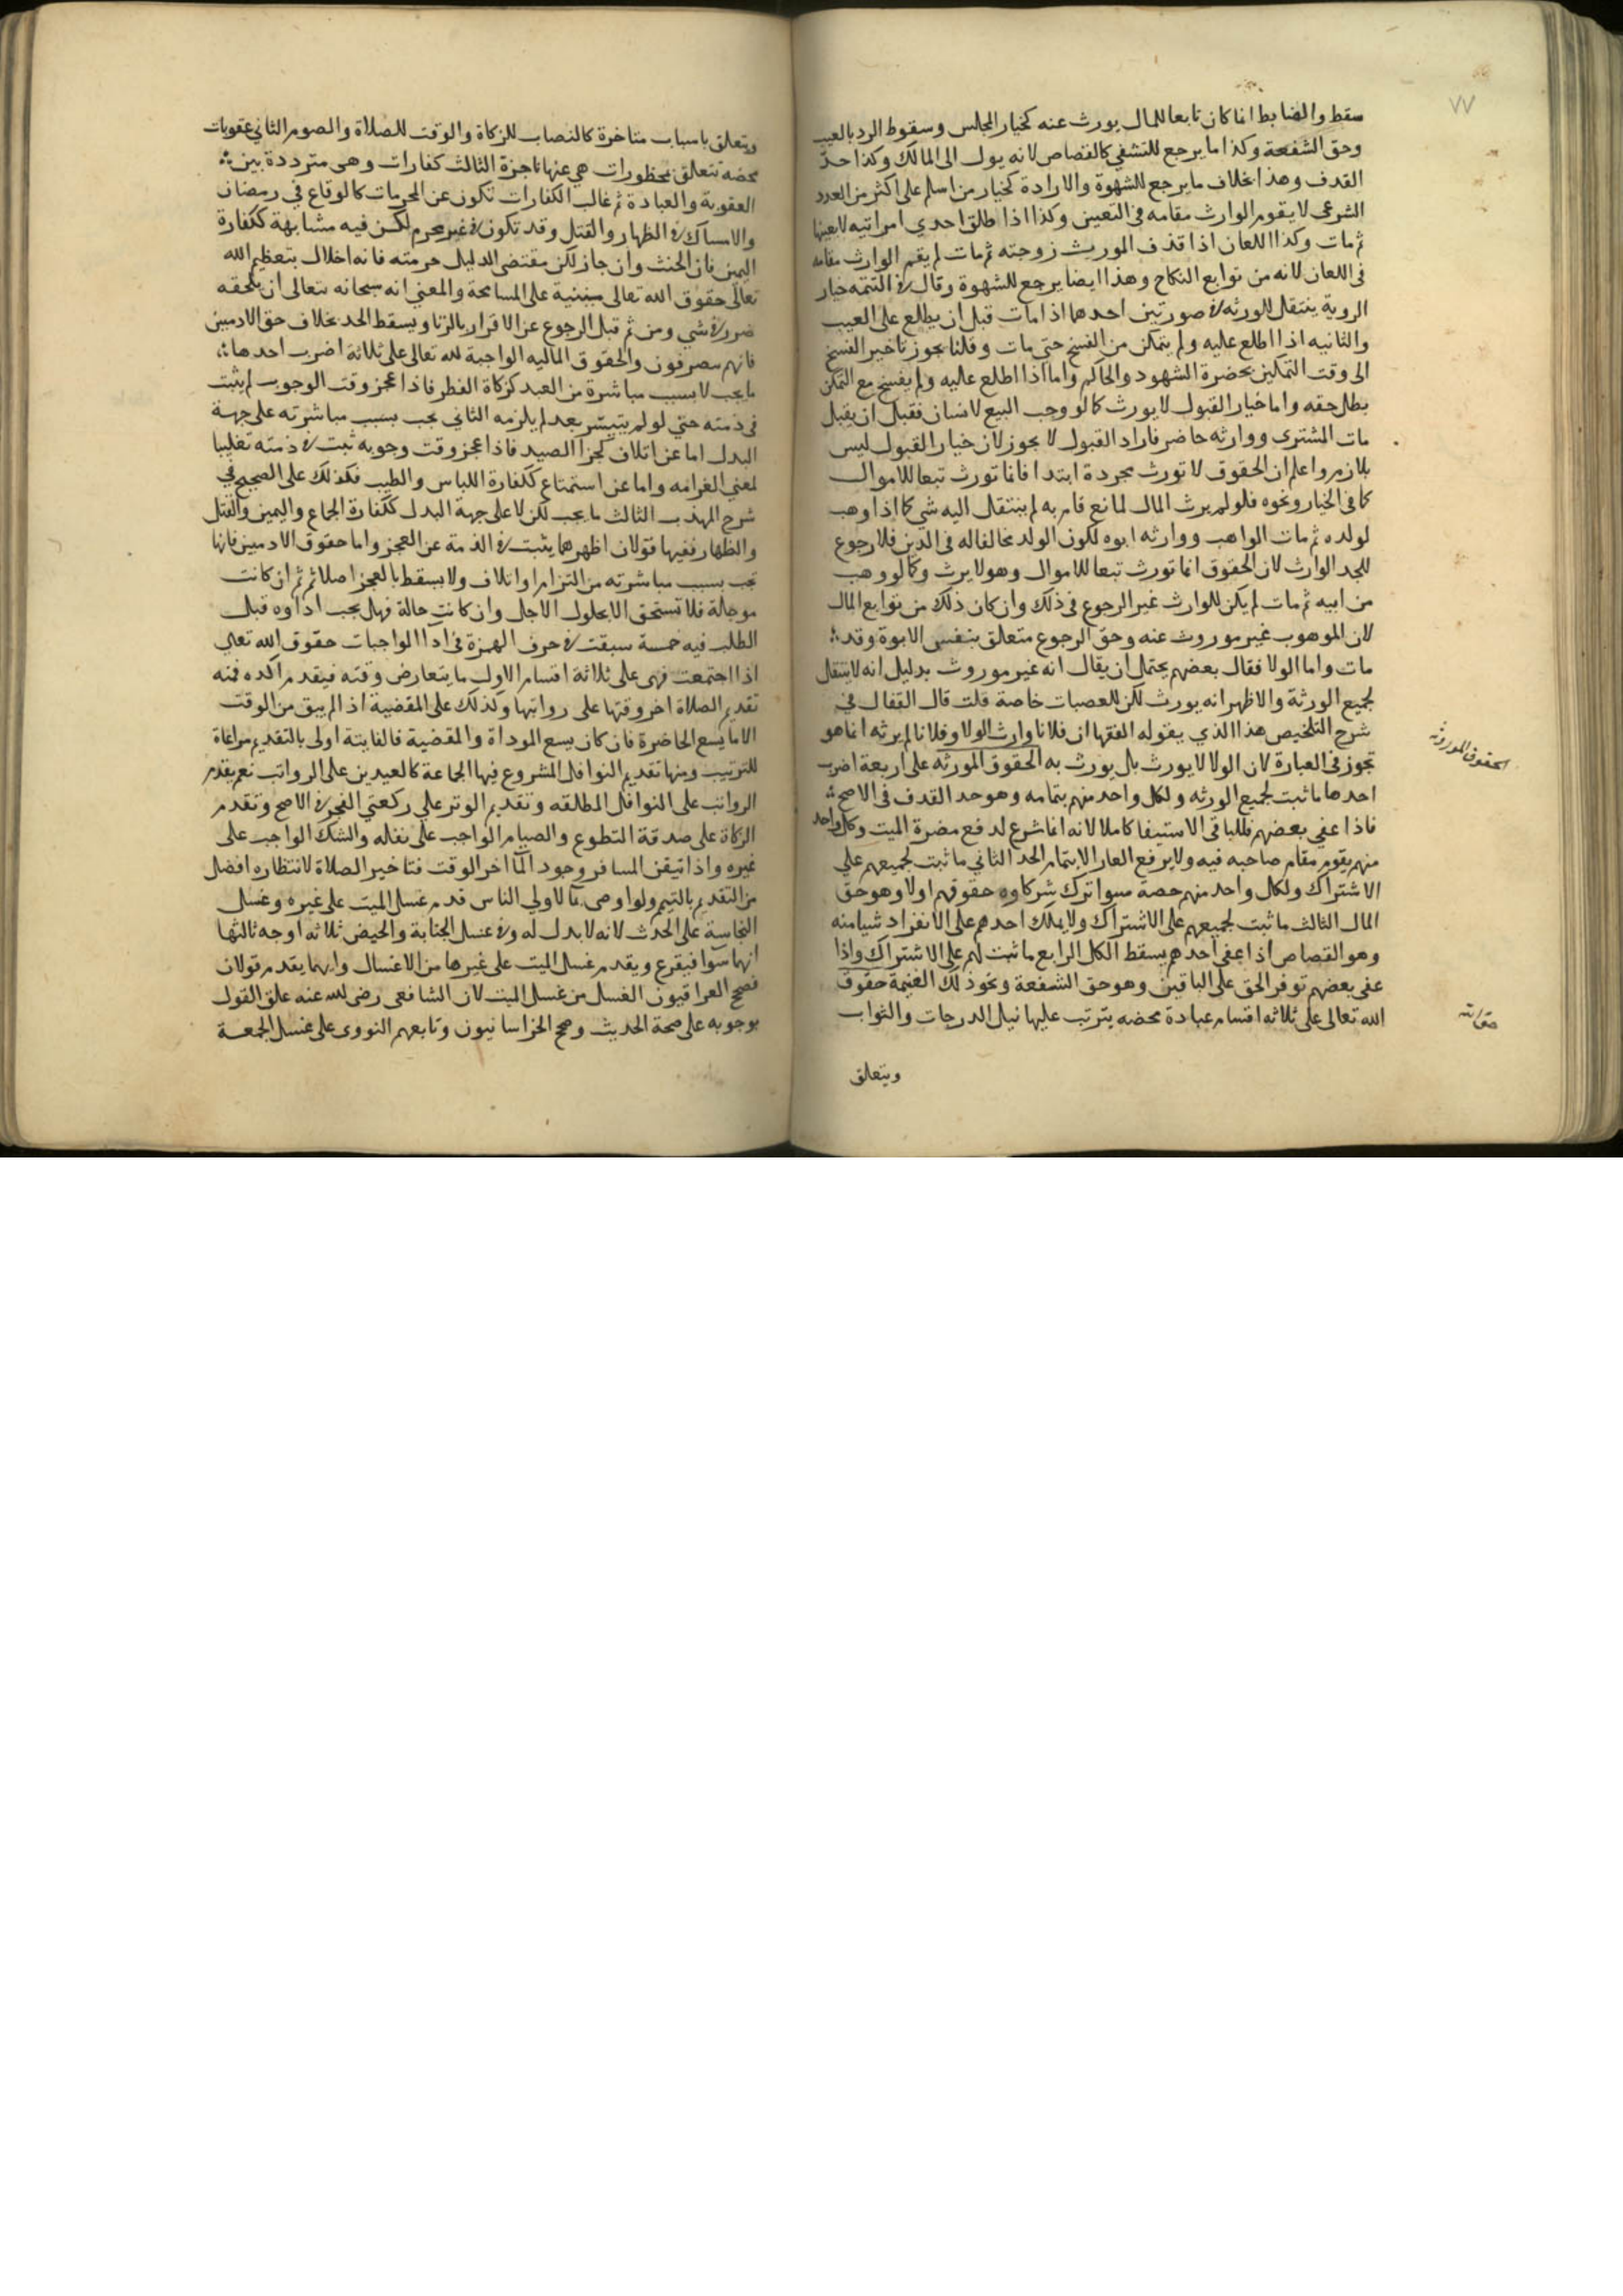 ٧٧
سقط والضابط ان ما كان تابعا للمال يورث عنه كخيار المجلس وسقوط الرد بالعيب
وحق الشفعة وكذا ما يرجع للتشفي كالقصاص لانه يول الى المالك وكذا حد
القدف وهذا بخلاف ما يرجع للشهوة والارادة كخيار من اسلم على اكثر من العدد
الشرعى لا يقوم الوارث مقامه في التعيين وكذا اذا طلق احدي امراتيه لا بعينها
ثم مات وكذا اللعان اذا قذف الموريث زوجته ثم مات لم يقم الوارث مقامه
في اللعان لانه من توابع النكاح وهذا ايضا يرجع للشهوة وقال في التتمه خيار
الروية ينتقل للورثه في صورتين احدهما اذا مات قبل ان يطلع على العيب
والثانيه اذا اطلع عليه ولم يتمكن من الفسخ حتي مات وقلنا يجوز تاخير الفسخ
الى وقت التمكين بحضرة الشهود والحاكم واما اذا اطلع عليه ولم يفسخ مع التمكن
بطل حقه واما خيار القبول لا يورث كالو وجب البيع لانسان فقبل ان يقبل
مات المشترى ووارثه حاضر فاراد القبول لا يجوز لان خيار القبول ليس
بلازم واعلم ان الحقوق لا تورث مجردة ابتدا فانما تورث تبعا للاموال
كما في الخيار ونحوه فلو لم يرث المال لمانع قام به لم ينتقل اليه شي كما اذا وهب
لولده ثم مات الواهب ووارثه ابوه لكون الولد مخالفا له في الدين فلا رجوع
للجد الوارث لان الحقوق انما تورث تبعا للاموال وهو لا يرث وكما لو وهب
من ابيه ثم مات لم يكن للوارث غير الرجوع في ذلك وان كان ذلك من توابع المال
لان الموهوب غير موروث عنه وحق الرجوع متعلق بنفس الابوة وقد
مات واما الولا فقال بعضهم يحتمل ان يقال انه غير موروث بدليل انه لا ينتقل
لجميع الورثة والاظهر انه يورث لكن للعصبات خاصة قلت قال القفال في
شرح التلخيص هذا الذي يقوله الفقها ان فلانا وارث الولا وفلانا لم يرثه انما هو
تجوز في العبارة لان الولا لا يورث بل يورث به الحقوق المورثه على اربعة اضرب
الحقوق الموروثه
احدها ما ثبت لجميع الورثه ولكل واحد منهم بتمامه وهو حد القدف في الاصح
فاذا عفي بعضهم فللباقي الاستيفا كاملا لانه انما شرع لدفع مضرة الميت وكل واحد
منهم يقوم مقام صاحبه فيه ولا يرفع العار الا بتمام الحد الثاني ما ثبت لجميعهم علي
الاشتراك ولكل واحد منهم حصة سوا ترك شركاوه حقوقهم اولا وهو حق
المال الثالث ما ثبت لجميعهم على الاشتراك ولا يملك احدهم على الانفراد شيا منه
وهو القصاص اذا عفي احدهم يسقط الكل الرابع ما ثبت لهم على الاشتراك واذا
عفي بعضهم توفر الحق على الباقين وهو حق الشفعة ونحو ذلك الغنيمة حقوق
الله تعالى على ثلاثه اقسام عبادة محضه يترتب عليها نيل الدرجات والثواب
ويتعلق
ويتعلق باسباب متاخرة كالنصاب للزكاة والوقت للصلاة والصوم الثاني عقوبات
محضه تتعلق بمحظورات هي عنها ناجزة الثالث كفارات وهى مترددة بين
العقوبة والعبادة ثم غالب الكفارات تكون عن المحرمات كالوقاع في رمضان
والامساك في الظهار والقتل وقد تكون في غير محرم لكن فيه مشابهة ككفارة
اليمين فان الحنث وان جاز لكن مقتضى الدليل حرمته فانه اخلال بتعظيم الله
تعالى حقوق الله تعالى مبنية على المسامحة والمعني انه سبحانه تعالى ان يلحقه
ضرر في شي ومن ثم قبل الرجوع عن الاقرار بالزنا ويسقط الحد بخلاف حق الادميين
فانهم يتضررون والحقوق الماليه الواجبة لله تعالى على ثلاثة اضرب احدها
ما يجب لا بسبب مباشرة من العبد كزكاة الفطر فاذا عجز وقت الوجوب لم يثبت
في ذمته حتي لو لم يتيسر بعد لم يلزمه الثاني يجب بسبب مباشرته على جهة
البدل اما عن اتلاف كجزا الصيد فاذا عجز وقت وجوبه ثبت في ذمته تغليبا
لمعني الغرامه واما عن استمتاع ككفارة اللباس والطيب فكذلك على الصحيح في
شرح المهذب الثالث ما يجب لكن لا على جهة البدل ككفارة الجماع واليمين والقتل
والظهار ففيها قولان اظهرهما يثبت في الذمة عن العجز واما حقوق الادميين فانها
تجب بسبب مباشرته من التزام او اتلاف ولا يسقط بالعجز اصلا ثم ان كانت
موجلة فلا تستحق الا بحلول الاجل وان كانت حالة فهل يجب اداوه قبل
الطلب فيه خمسة سبقت في حرف الهمزة في ادا الواجبات حقوق الله تعالي
اذا اجتمعت فهى على ثلاثة اقسام الاول ما يتعارض وقته فيقدم اكده فمنه
تقديم الصلاة اخر وقتها على رواتبها وكذلك على المقضية اذا لم يبق من الوقت
الا ما يسع الحاضرة فان كان يسع الموداة والمقضية فالفايتة اولى بالتقديم مراعاة
للترتيب ومنها تقديم النوافل المشروع فيها الجماعة كالعيدين على الرواتب نعم يقدم
الرواتب على النوافل المطلقه وتقديم الوتر علي ركعتي الفجر في الاصح وتقدم
الزكاة على صدقة التطوع والصيام الواجب على نفله والنسك الواجب على
غيره واذا تيقن المسافر وجود الما اخر الوقت فتاخير الصلاة لانتظاره افضل
من التقديم بالتيمم ولو اوصى بما لاولي الناس قدم غسل الميت على غيره وغسل
النجاسة على الحدث لانه لا بدل له وفي غسل الجنابة والحيض ثلاثه اوجه ثالثها
انهما سوا فيقرع ويقدم غسل الميت على غيرها من الاغسال وايهما يقدم قولان
فصحح العراقيون الغسل من غسل الميت لان الشافعى رضى الله عنه علق القول
بوجوبه على صحة الحديث وصحح الخراسانيون وتابعهم النووى على غسل الجمعة